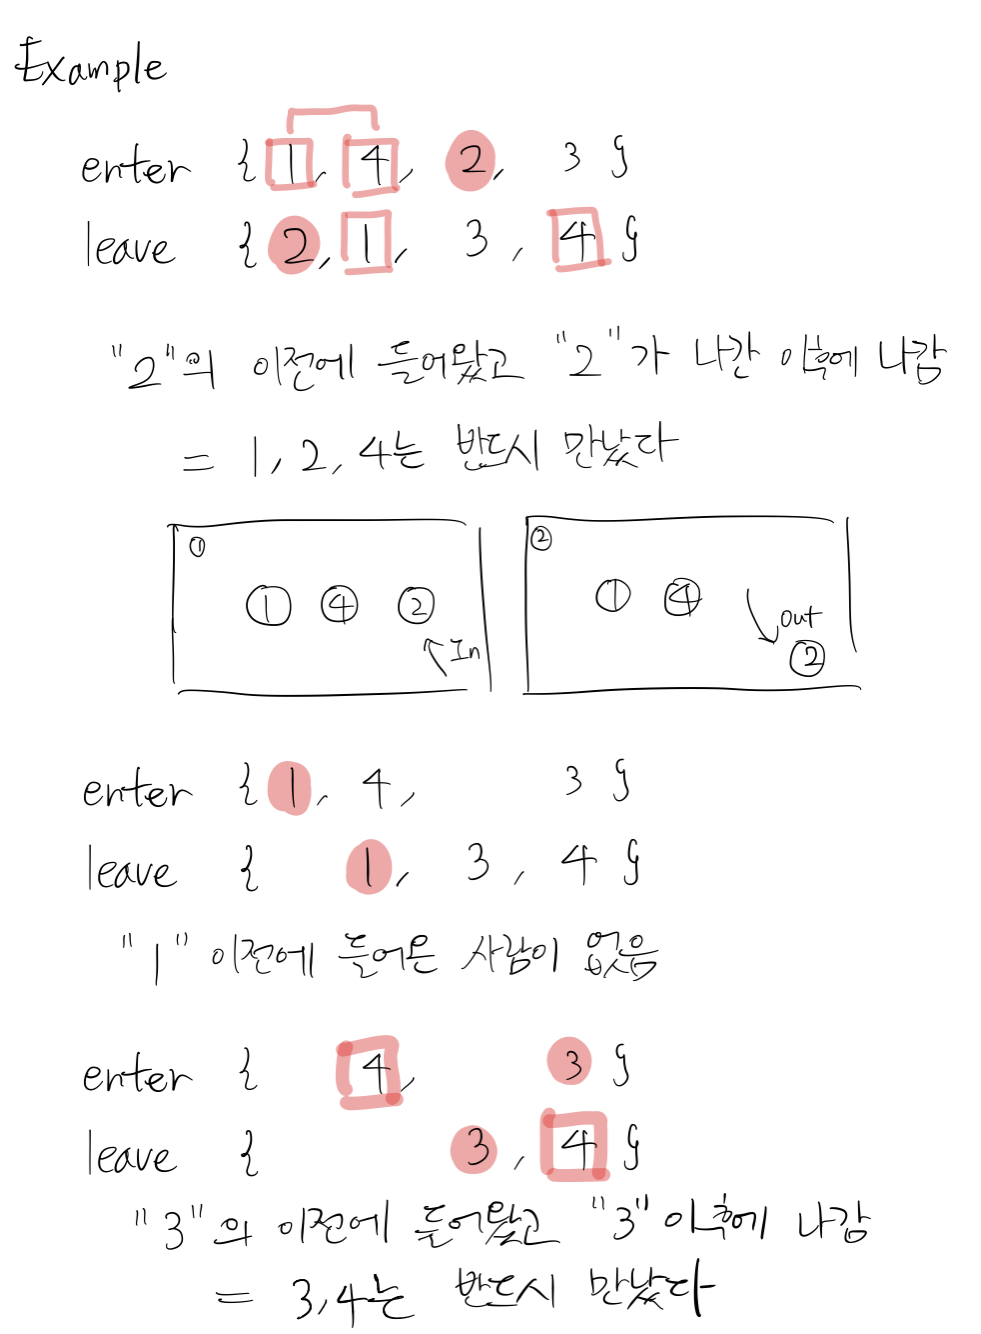 Example
enter { 1, 4, 2, 3 }
leave { 2, 1, 3, 4 }
"2"의 이전에 들어왔고 "2"가 나간 이후에 나감
= 1, 2, 4는 반드시 만났다
① ②
① ④ ② ① ④
In out
②
enter { 1, 4, 3 }
leave { 1, 3, 4 }
"1" 이전에 들어온 사람이 없음
enter { 4, 3 }
leave { 3, 4 }
"3"의 이전에 들어왔고 "3" 이후에 나감
= 3,4는 반드시 만났다